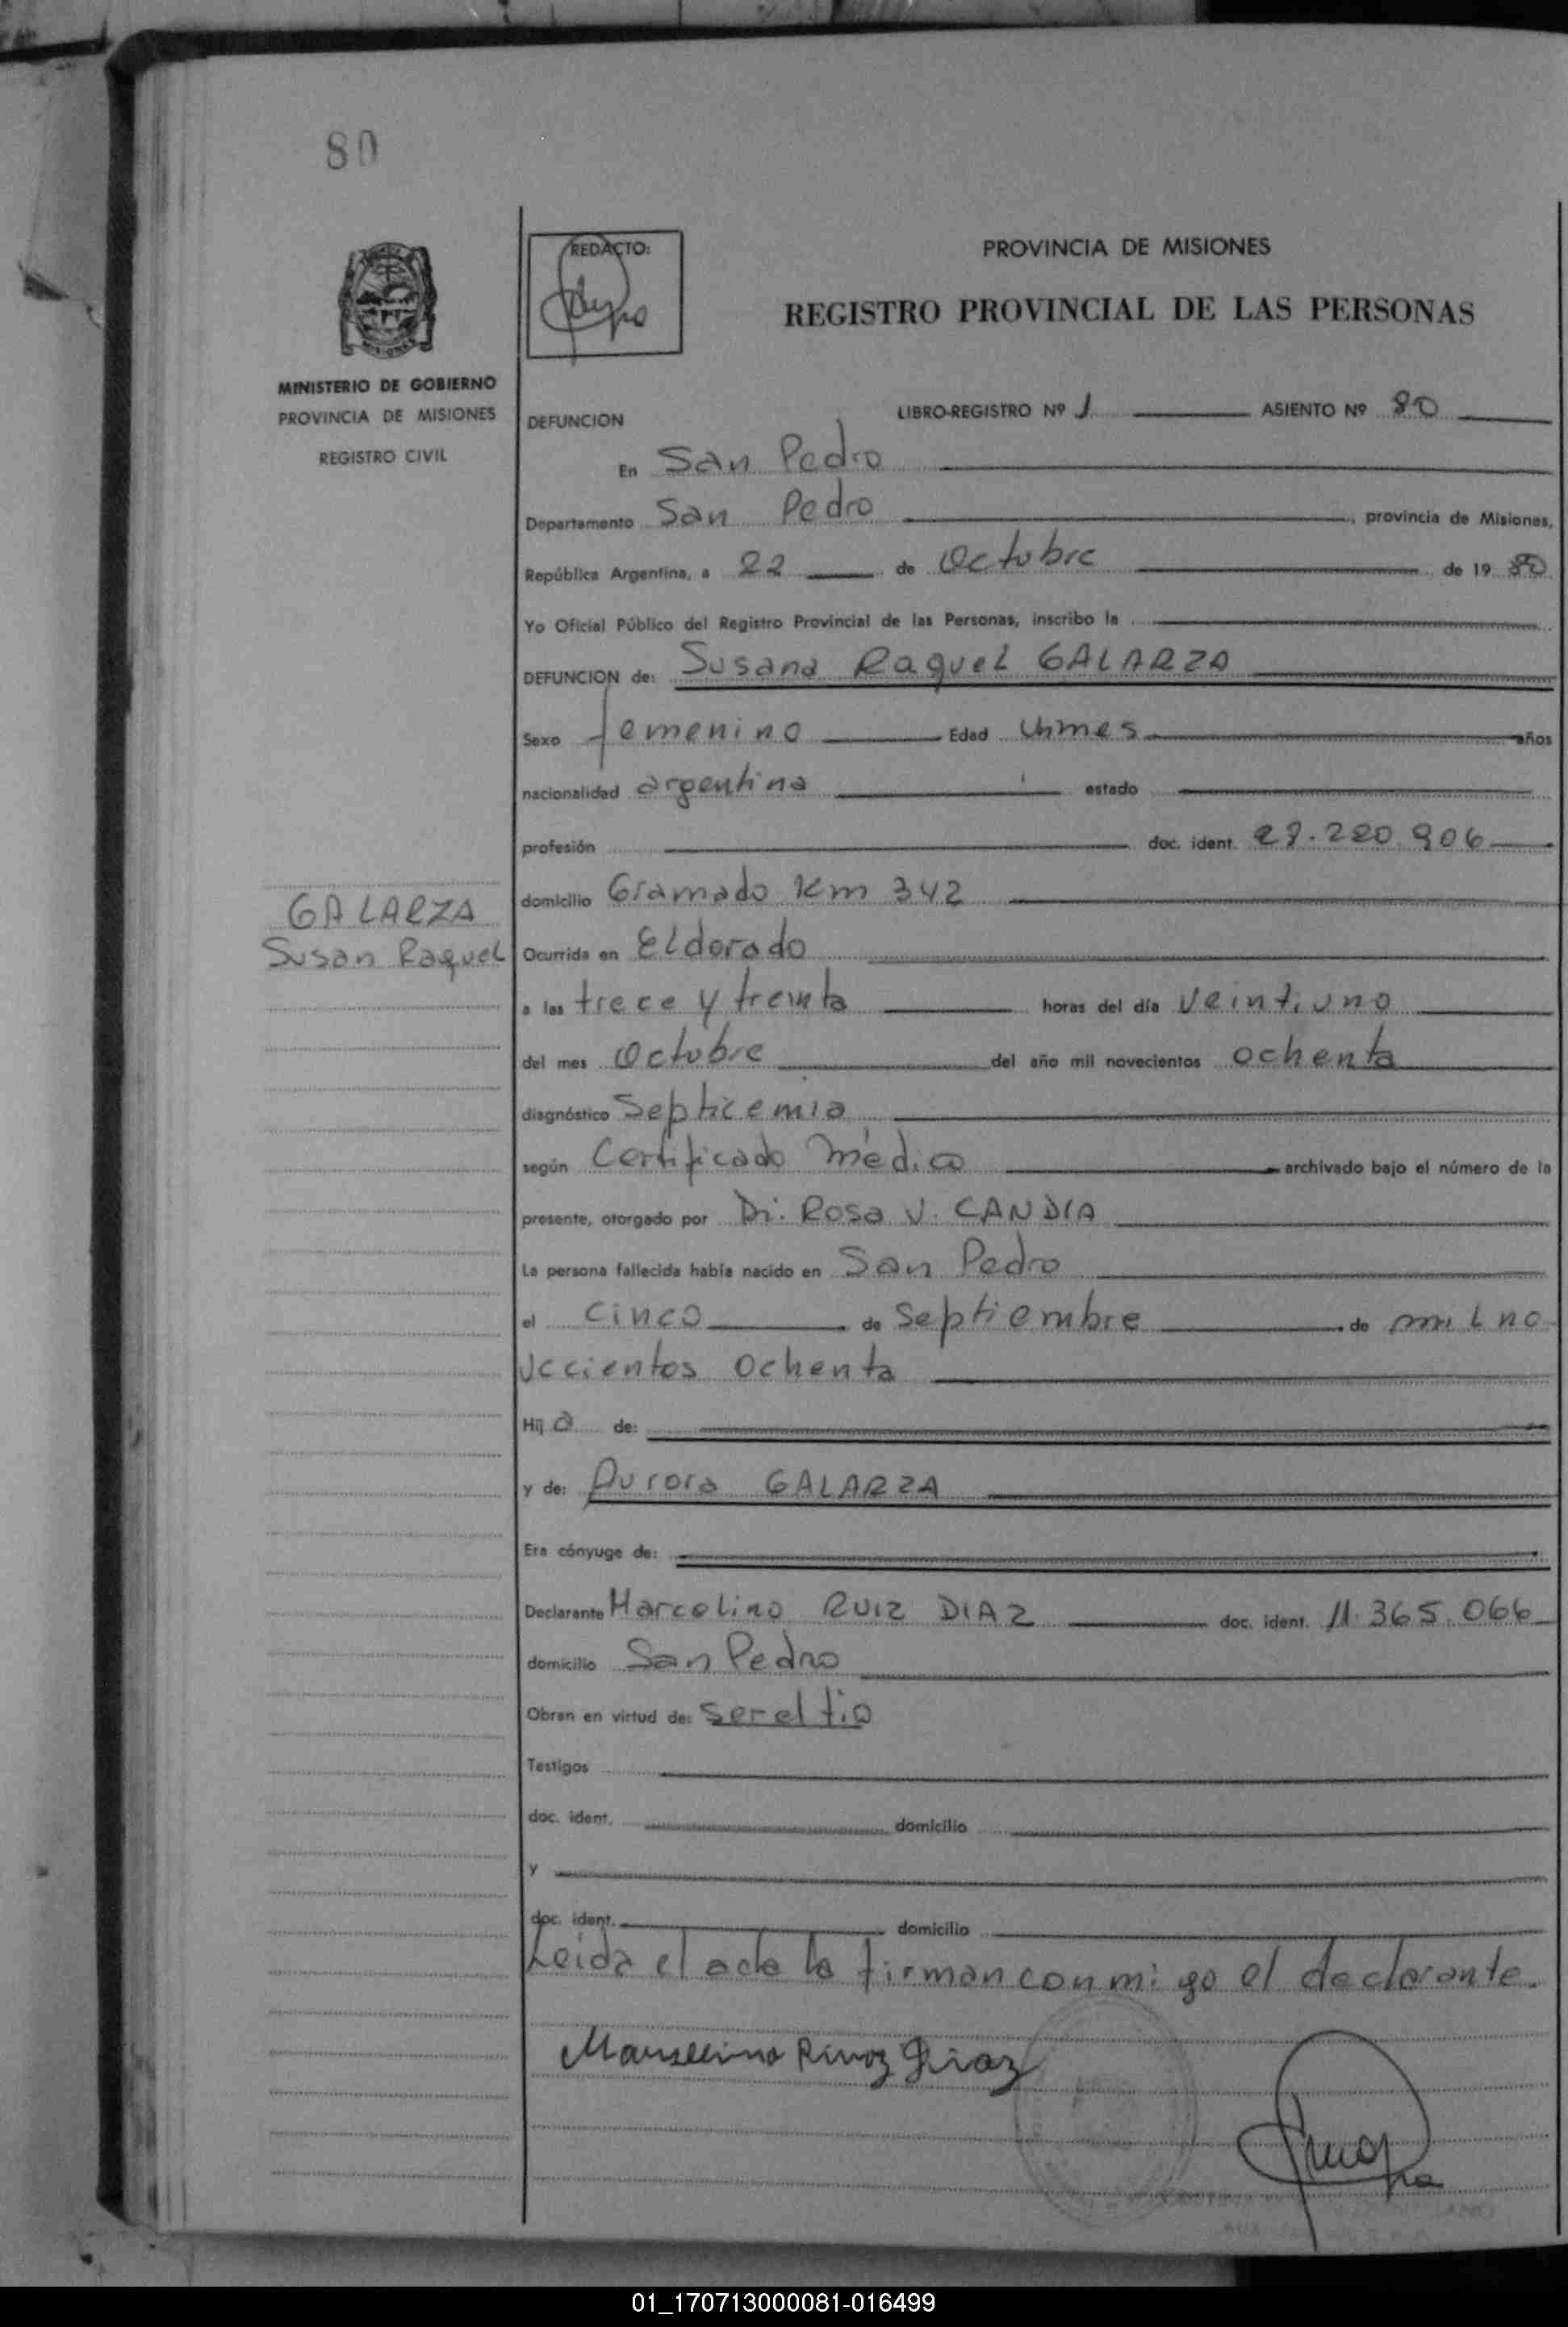 80
REDACTO:
PROVINCIA DE MISIONES
REGISTRO PROVINCIAL DE LAS PERSONAS
MINISTERIO DE GOBIERNO
PROVINCIA DE MISIONES
REGISTRO CIVIL
DEFUNCION LIBRO-REGISTRO Nº 1 ASIENTO Nº 80
En San Pedro
Departamento San Pedro, provincia de Misiones,
República Argentina, a 22 de Octubre de 19 80
Yo Oficial Público del Registro Provincial de las Personas, inscribo la
DEFUNCION de: Susana Raquel GALARZA
Sexo femenino Edad Un mes años
nacionalidad argentina estado
profesión doc. ident. 27.220.906
domicilio Gramado Km 342
GALARZA
Susan Raquel
Ocurrida en Eldorado
a las trece y treinta horas del día veintiuno
del mes Octubre del año mil novecientos ochenta
diagnóstico Septicemia
según Certificado médico archivado bajo el número de la
presente, otorgado por Dr. Rosa V. CANDIA
La persona fallecida había nacido en San Pedro
el cinco de septiembre de mil no
vecientos ochenta
Hij a de:
y de: Aurora GALARZA
Era cónyuge de:
Declarante Marcelino RUIZ DIAZ doc. ident. 11.365.066
domicilio San Pedro
Obran en virtud de: ser el tio
Testigos
doc. ident. domicilio
y
doc. ident. domicilio
Leida el acta la firman conmigo el declarante.
01_170713000081-016499